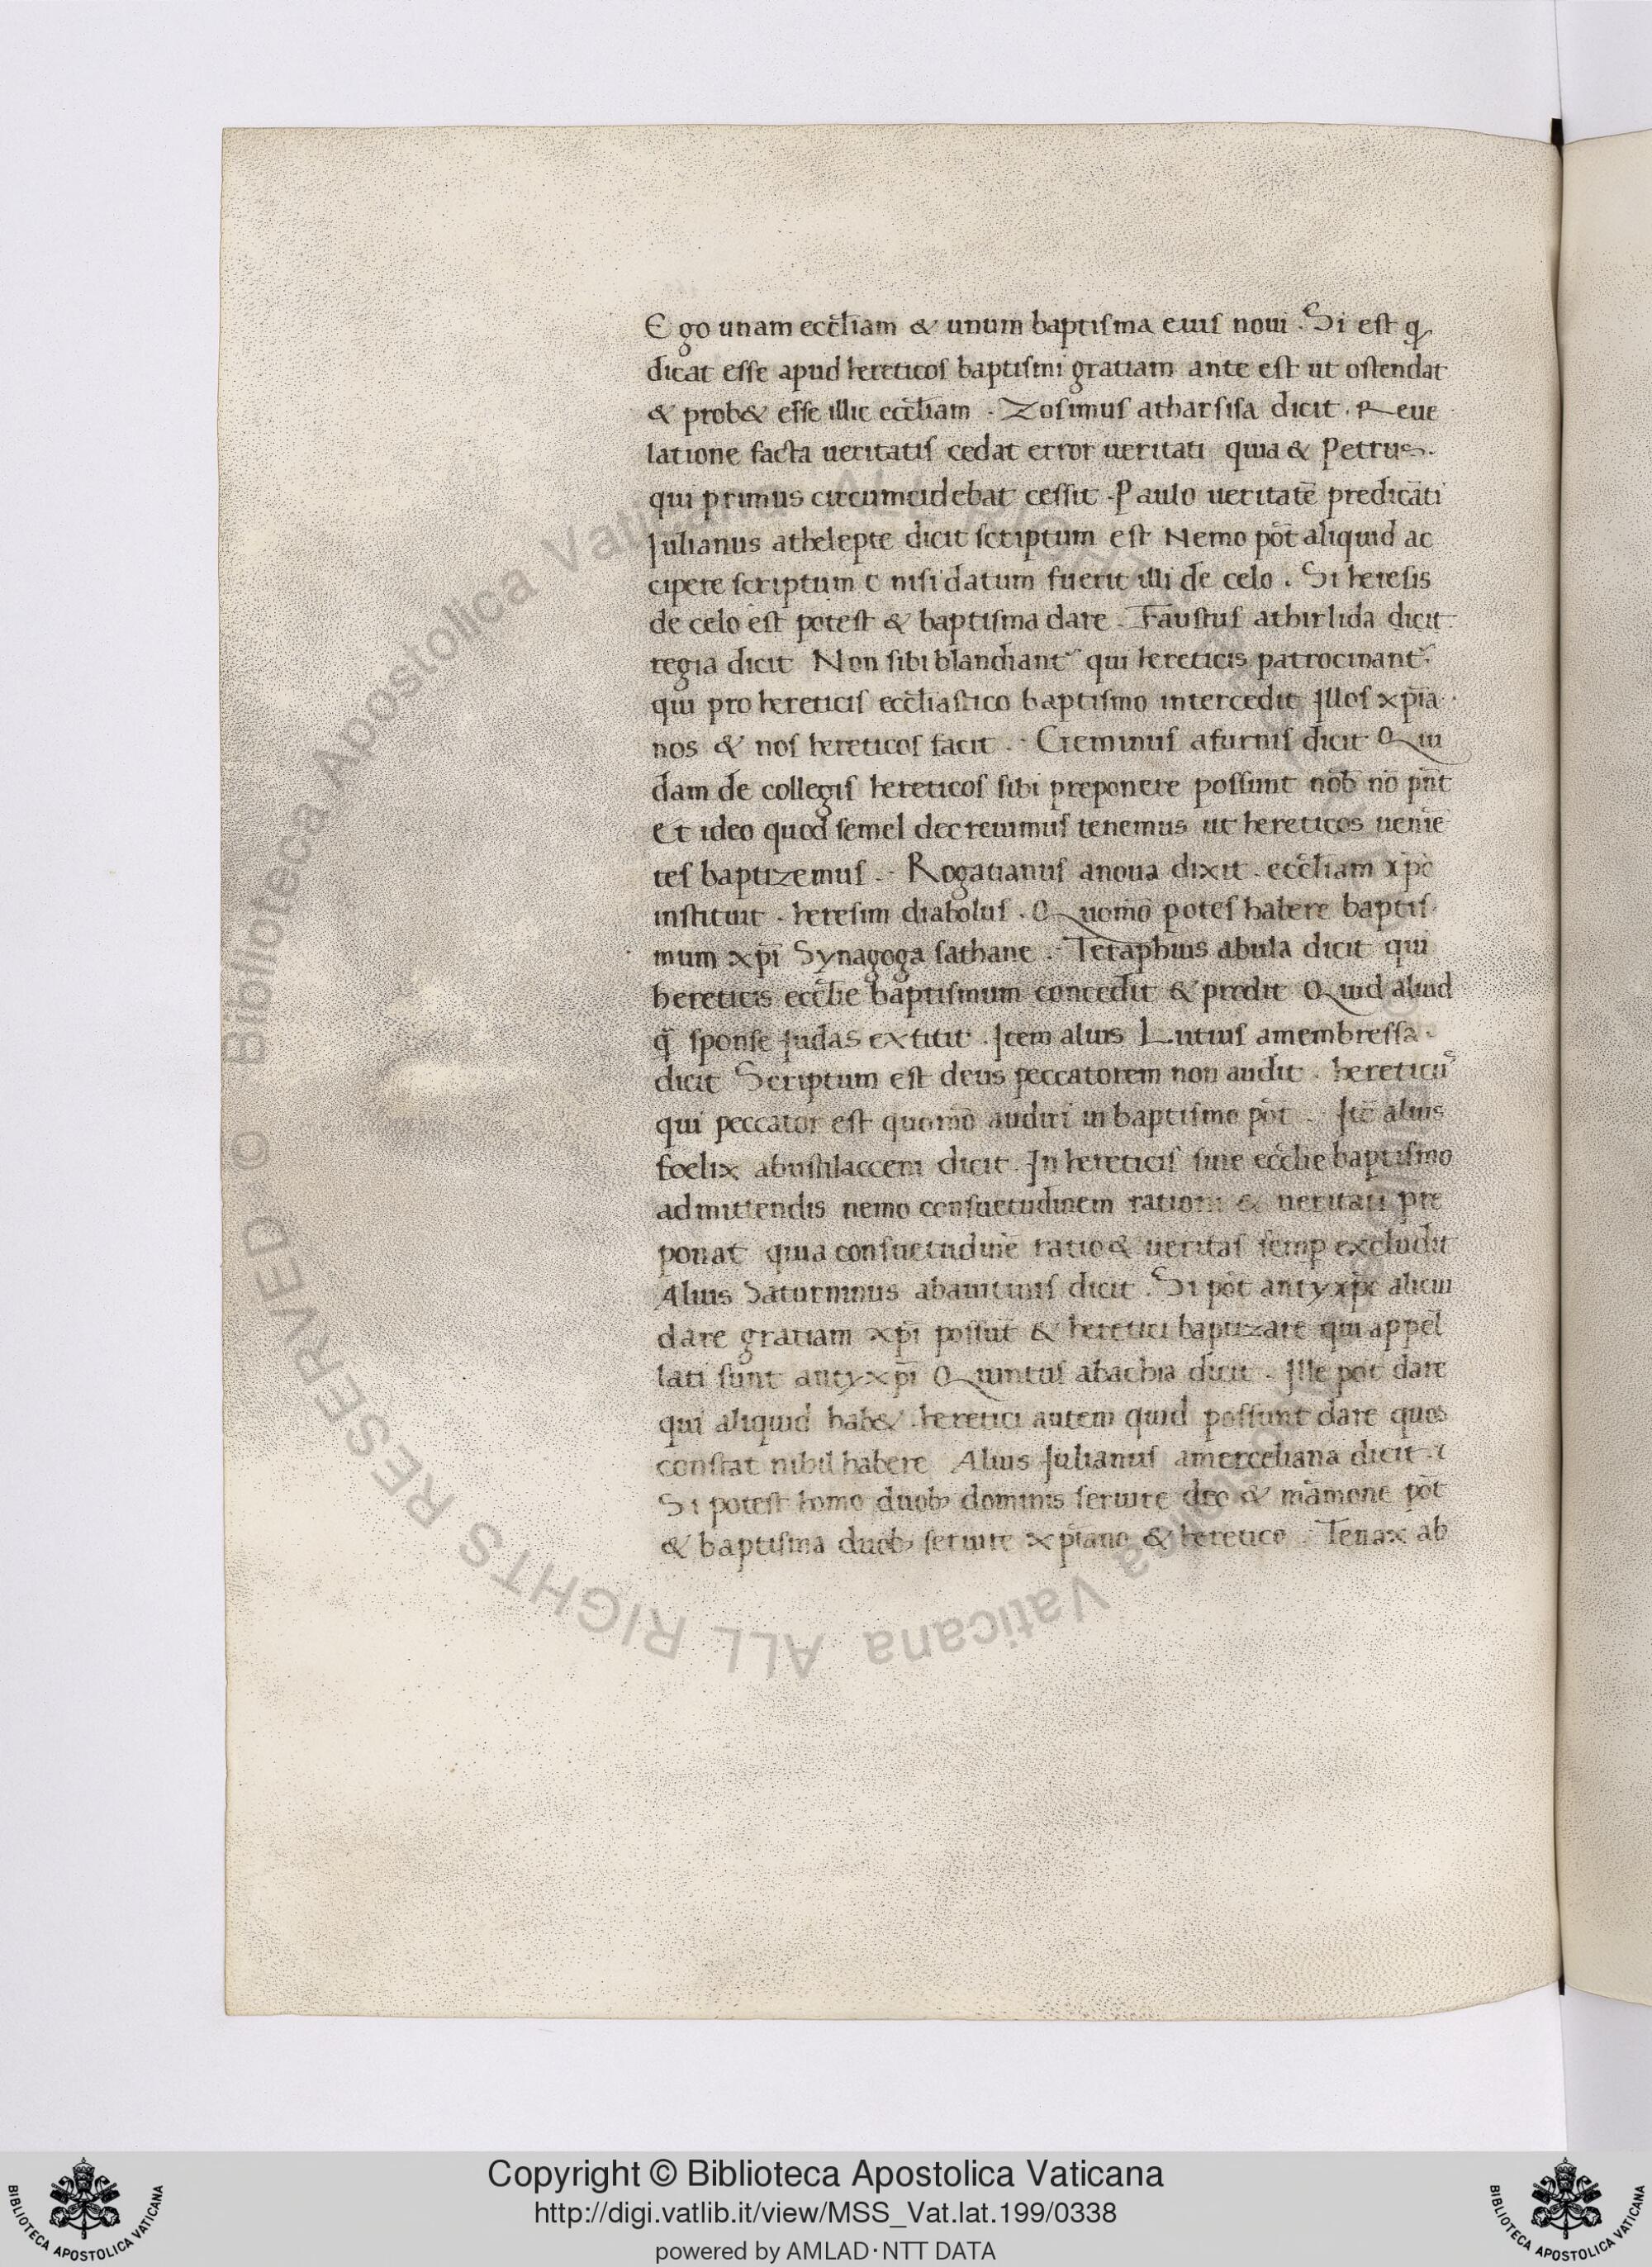 Ego unam eccl̄iam & unum baptisma eius noui . Si est q̄
dicat esse apud hereticos baptismi gratiam ante est ut ostendat
& prob& esse illic eccl̄iam . Zosimus atharsisa dicit . Reue
latione facta ueritatis cedat error ueritati quia & Petrus .
qui primus circumcidebat cessit . Paulo ueritatē predicāti
Julianus athelepte dicit scriptum est Nemo pōt aliquid ac
cipere scriptum c nisi datum fuerit illi de celo . Si heresis
de celo est potest & baptisma dare . Faustus athirlida dicit
regia dicit Non sibi blandiant᷑ qui hereticis patrocinant᷑ .
qui pro hereticis eccl̄iastico baptismo intercedit Illos xp̄ia
nos & nos hereticos facit . Geminus afurnis dicit Qui
dam de collegis hereticos sibi preponere possunt nob̄ nō pn̄t
Et ideo quod semel decreuimus tenemus ut hereticos uenie
tes baptizemus . Rogatianus anoua dixit . eccl̄iam xp̄c
instituit . heresim diabolus . Quomō potes habere baptis
mum xp̄i Synagoga sathane . Teraphius abula dicit qui
hereticis eccl̄ie baptismum concedit & prodit Quid aliud
q̄ sponse Judas extitit . Item alius Lutius amembressa .
dicit Scriptum est deus peccatorem non audit . hereticus
qui peccator est quomō audiri in baptismo pōt . Itē alius
foelix abushlacceni dicit . In hereticis siue eccl̄ie baptismo
admittendis nemo consuetudinem rationi & ueritati pre
ponat quia consuetudinē ratio & ueritas semp excludit
Alius Saturninus abauitinis dicit . Si pōt antyxp̄c alicui
dare gratiam xp̄i possūt & heretici baptizare qui appel
lati sunt antyxp̄i Quintus abachia dicit . Ille pot dare
qui aliquid hab& . heretici autem quid possunt dare quos
constat nihil habere Alius Julianus amerceliana dicit .
Si potest homo duob; dominis seruire deo & māmone pōt
& baptisma duob; seruire xp̄iano & heretico . Tenax ab
Copyright © Biblioteca Apostolica Vaticana
http://digi.vatlib.it/view/MSS_Vat.lat.199/0338
powered by AMLAD·NTT DATA
BIBLIOTECA APOSTOLICA VATICANA
BIBLIOTECA APOSTOLICA VATICANA
© Biblioteca Apostolica Vaticana ALL RIGHTS RESERVED